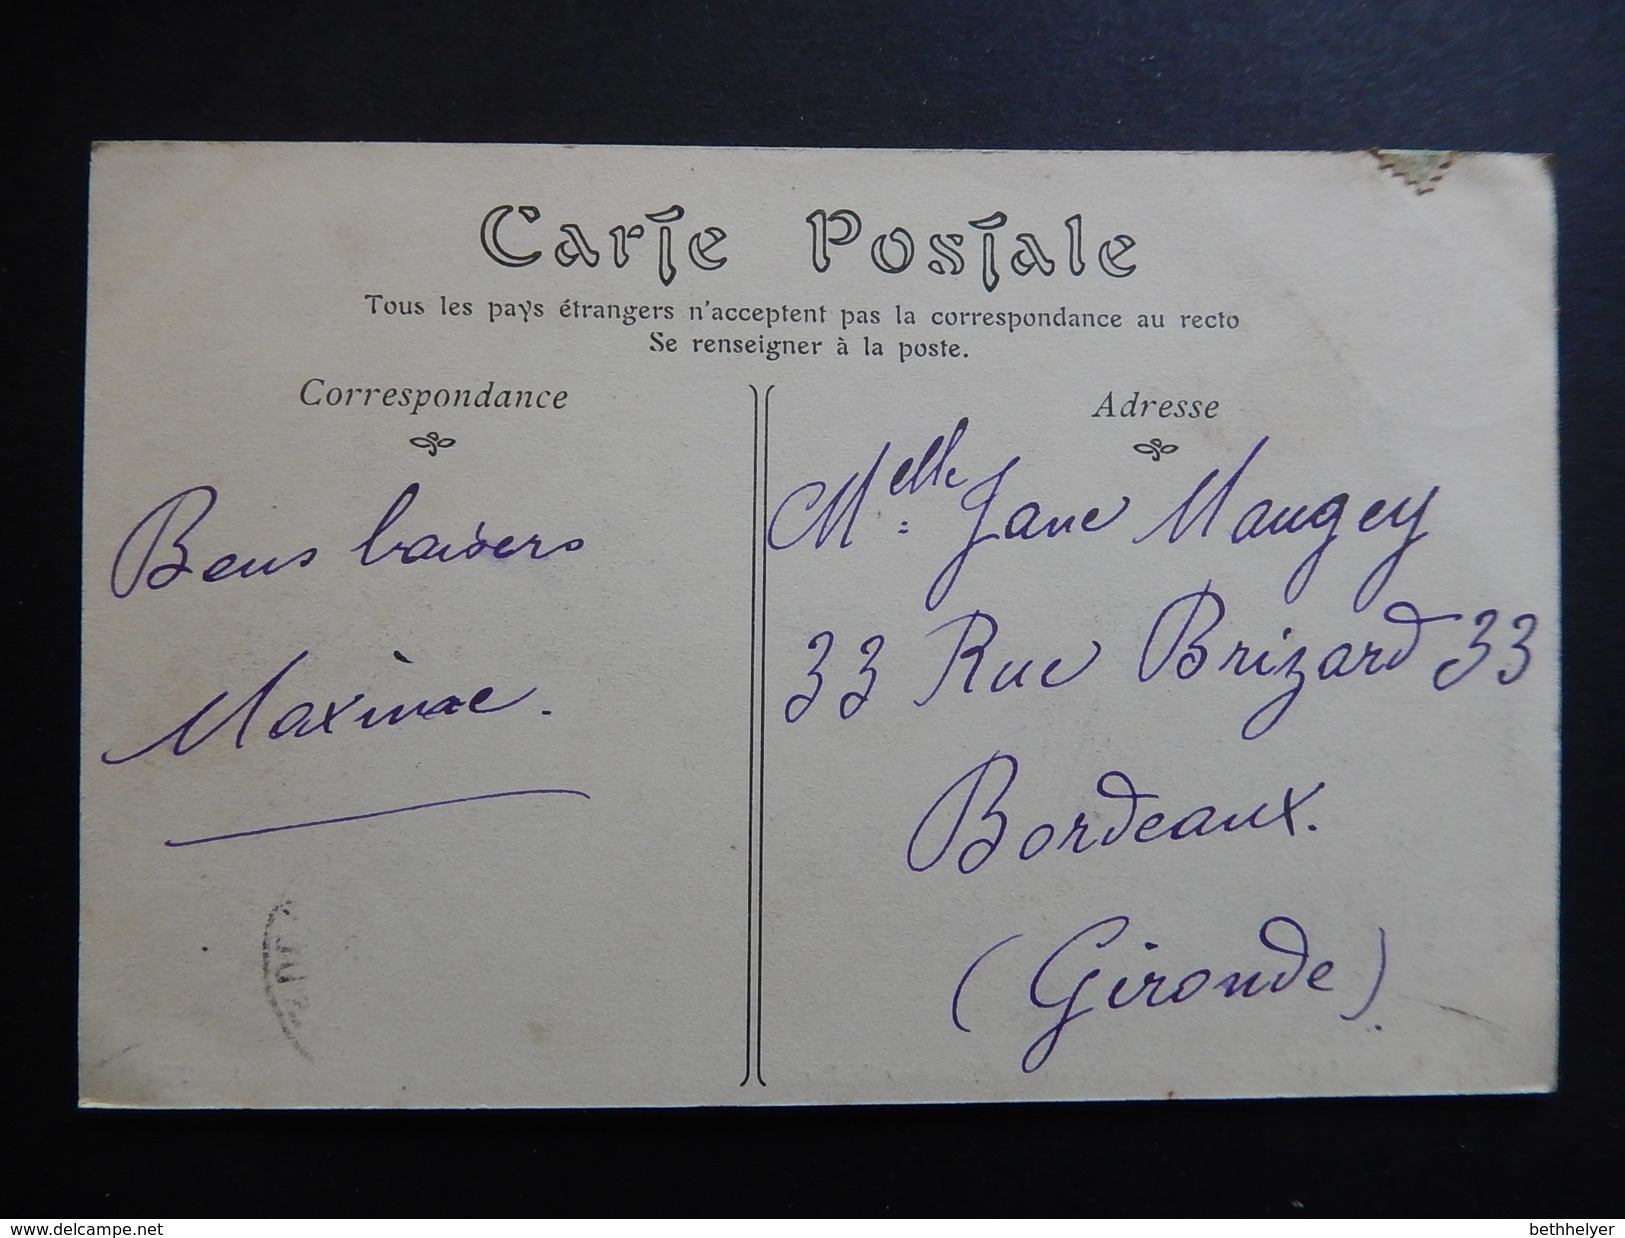 Carte Postale
Tous les pays étrangers n'acceptent pas la correspondance au recto
Se renseigner à la poste.
Correspondance
Bons baisers
Maxime.
Adresse
Melle Jane Maugey
33 Rue Brizard 33
Bordeaux.
(Gironde)
www.delcampe.net
bethhelyer